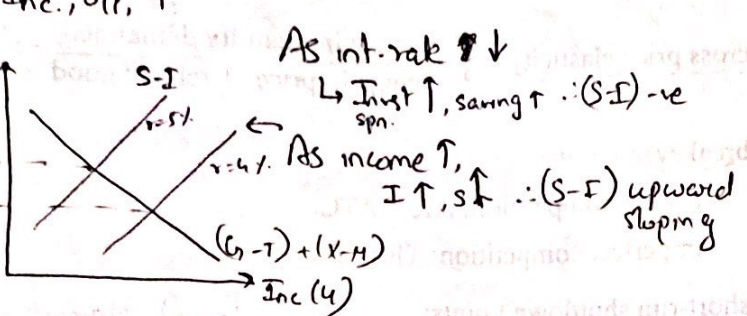 Inc.,
As int. rate ↓
S-I
↳ Invst ↑, saving ↑ ∴ (S-I) -ve
spn.
r=5%
← As income ↑,
r=4%
I ↑, S ↑ ∴ (S-I) upward
sloping
(G-T) + (X-M)
Inc (Y)